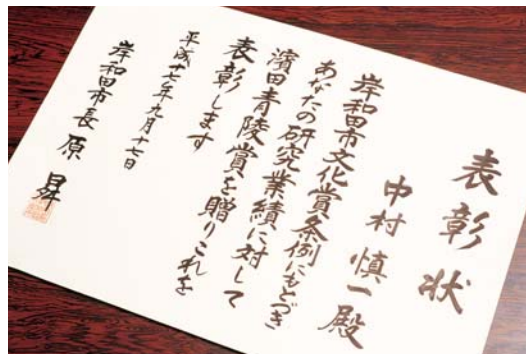 表彰状
中村慎一殿
岸和田市文化賞条例にもとづき
あなたの研究業績に対して
濱田青陵賞を贈りこれを
表彰します
平成十七年九月十七日
岸和田市長 原 昇